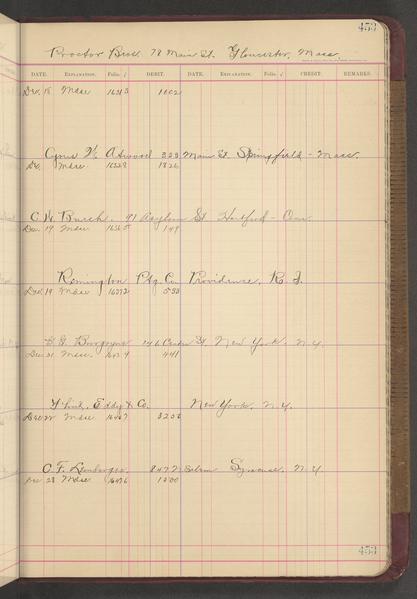 453
Proctor Bros. 78 Main St. Gloucester, Mass.
DATE. EXPLANATION. Folio. DEBIT. DATE. EXPLANATION. Folio. CREDIT. REMARKS.
Dec. 18 Mdse 1002
Cyrus W. Atwood 333 Main St. Springfield - Mass.
Dec. Mdse 16328 1826
C. W. Burch. 91 Asylum St Hartford - Con.
Dec. 19 Mdse 149
Remington Ptg. Co. Providence, R. I.
Dec. 19 Mdse 16372
146 Centre St. New York. N.Y.
Dec 21 Mdse. 441
Eddy & Co. New York. N.Y.
Dec 22 Mdse 3256
C. F. 847 N. Salina Syracuse. N.Y.
Dec 23 Mdse 16476 1500
453